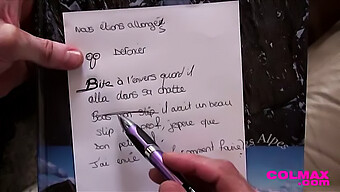 Nous étions allongés
Défoncer
Bite à l'envers quand il
alla dans sa chatte
Pas un slip il avait un beau
slip
que
Don
J'ai envie comment faire
Alpes
COLMAX
.com